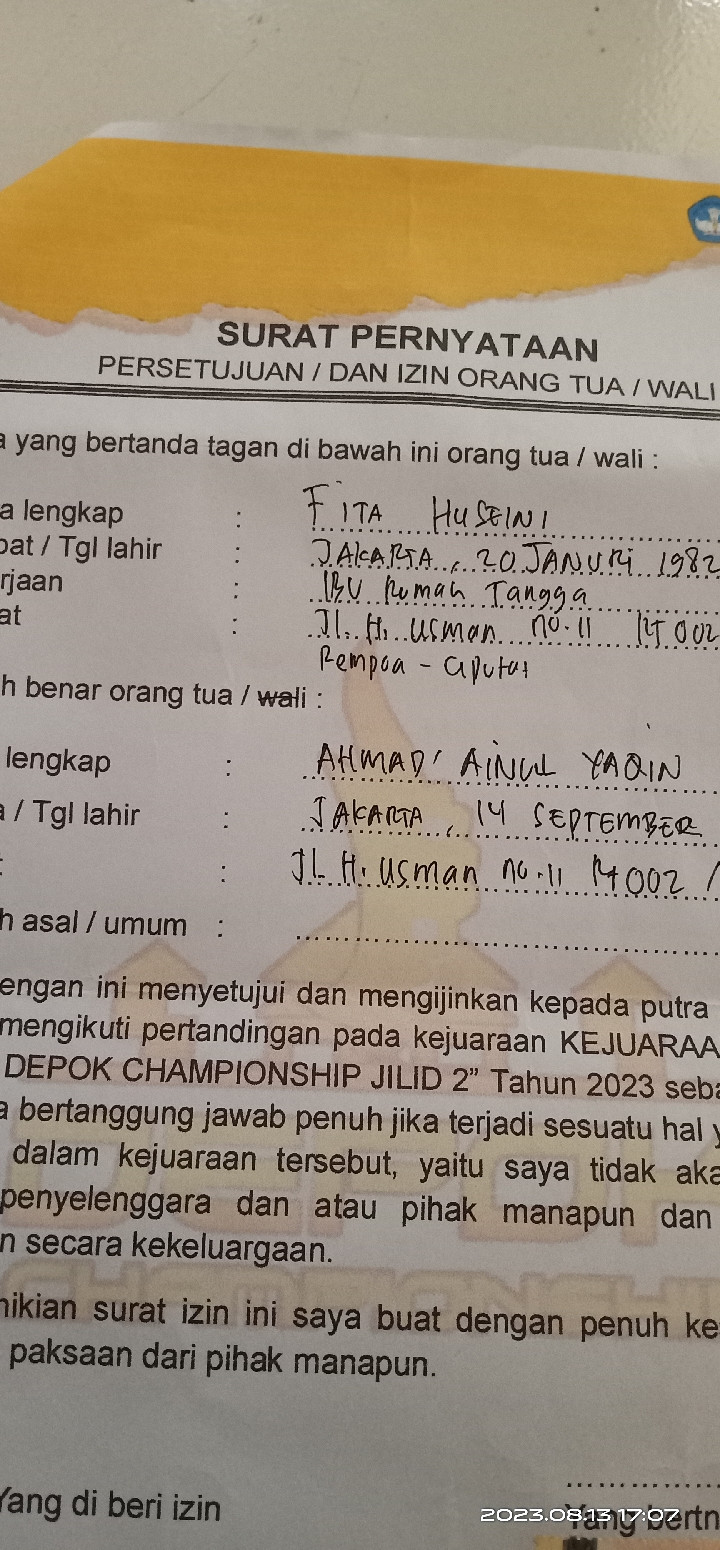 SURAT PERNYATAAN
PERSETUJUAN / DAN IZIN ORANG TUA / WALI
a yang bertanda tagan di bawah ini orang tua / wali :
a lengkap : FITA HUSEINI
pat / Tgl lahir : JAKARTA, 20 JANURI 1982
rjaan : IBU Rumah Tangga
at : Jl. H. Usman no. 11 RT 002
Rempoa - Ciputat
h benar orang tua / wali :
lengkap : AHMAD AINUL YAQIN
a / Tgl lahir : JAKARTA, 14 SEPTEMBER
: JL H. Usman no. 11 RT 002 /
h asal / umum :
engan ini menyetujui dan mengijinkan kepada putra
mengikuti pertandingan pada kejuaraan KEJUARAA
DEPOK CHAMPIONSHIP JILID 2” Tahun 2023 seba
a bertanggung jawab penuh jika terjadi sesuatu hal y
dalam kejuaraan tersebut, yaitu saya tidak aka
penyelenggara dan atau pihak manapun dan
n secara kekeluargaan.
nikian surat izin ini saya buat dengan penuh ke
paksaan dari pihak manapun.
Yang di beri izin
Yang bertn
2023.08.13 17:07